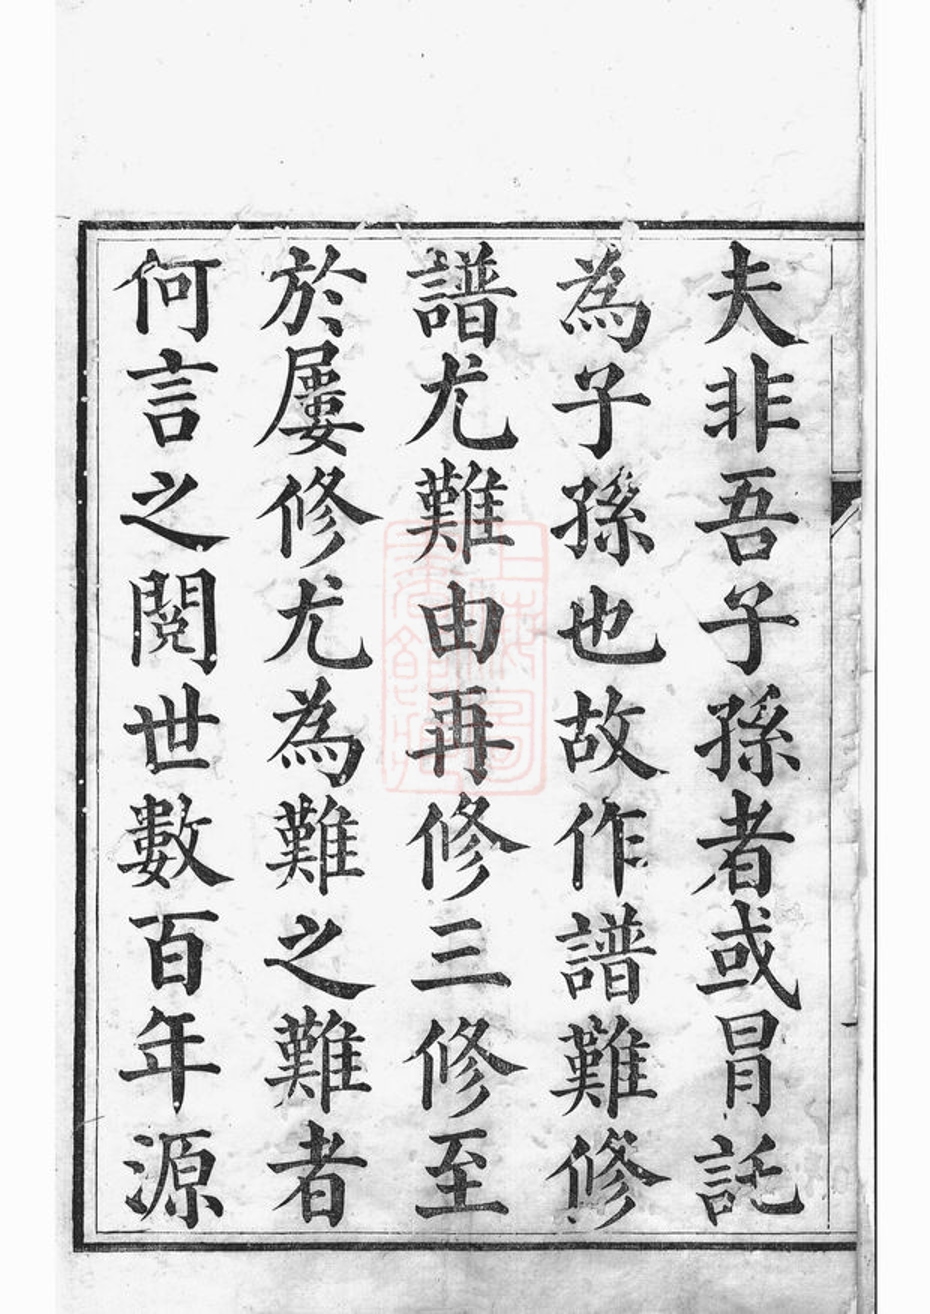 夫非吾子孫者或冒託
為子孫也故作譜難修
譜尤難由再修三修至
於屢修尤為難之難者
何言之閱世數百年源